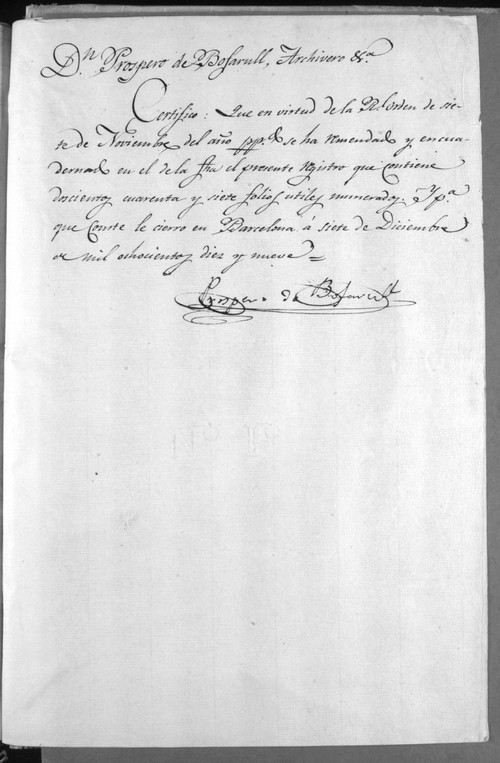 Dn. Prospero de Bofarull, Archivero &a.
Certifico: Que en virtud de la Rl. orden de sie-
te de Noviembre del año pp.do se ha remendado y encua-
dernado en el de la fha el presente registro que contiene
docientos cuarenta y siete folios utiles numerados. Y pa.
que conste le cierro en Barcelona á siete de Diciembre
de mil ochocientos diez y nueve =
Prospero de Bofarull